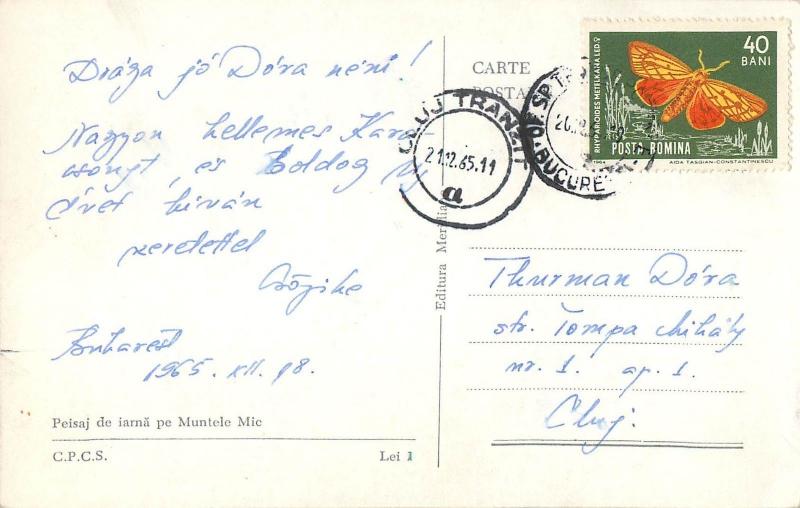 Drága jó Dóra néni!
Nagyon kellemes Kará-
csonyt, és Boldog Új
évet kíván
szeretettel
Bözsike
Bukarest
1965. XII. 18.
Peisaj de iarnă pe Muntele Mic
C.P.C.S. Lei 1
Editura Meridiane
CARTE
POSTALĂ
CLUJ TRANZIT
21.12.65.11
a
BUCUREȘTI
40
BANI
RHYPAROIDES METELKANA LED. ♀
POSTA ROMINA
1964 AIDA TASGIAN-CONSTANTINESCU
Thurman Dóra
str. Tompa Mihály
nr. 1. ap. 1.
Cluj.